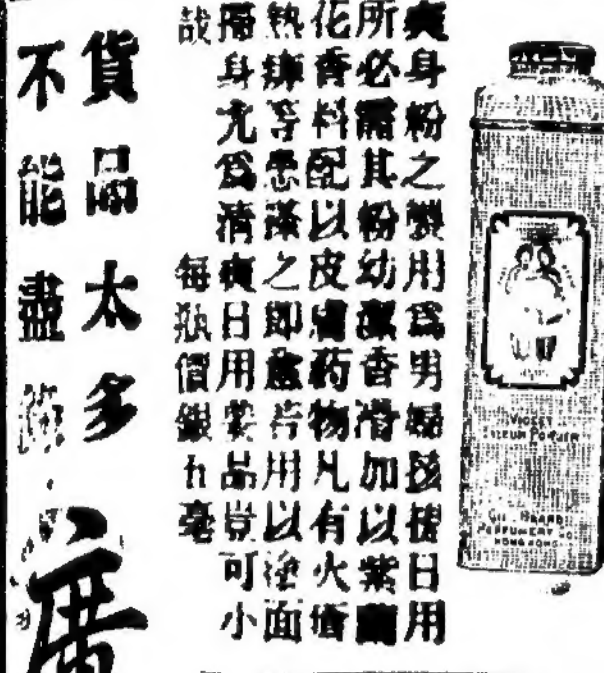 爽身粉之製用爲男婦孩提日用
所必需其粉幼潔香滑加以紫蘭
化香料配以皮膚葯物凡有火瘡
熱痱等患搽之即愈若用以塗面
身尤爲清爽日用要品豈可小
哉 每瓶價銀五毫
貨品太多
不能盡
廣
VIOLET
TALCUM POWDER
BRAND
PERFUMERY CO.
HONG KONG